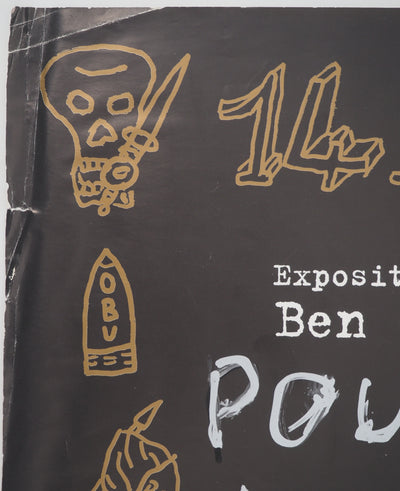 14.
Exposit
Ben
OBU
POU